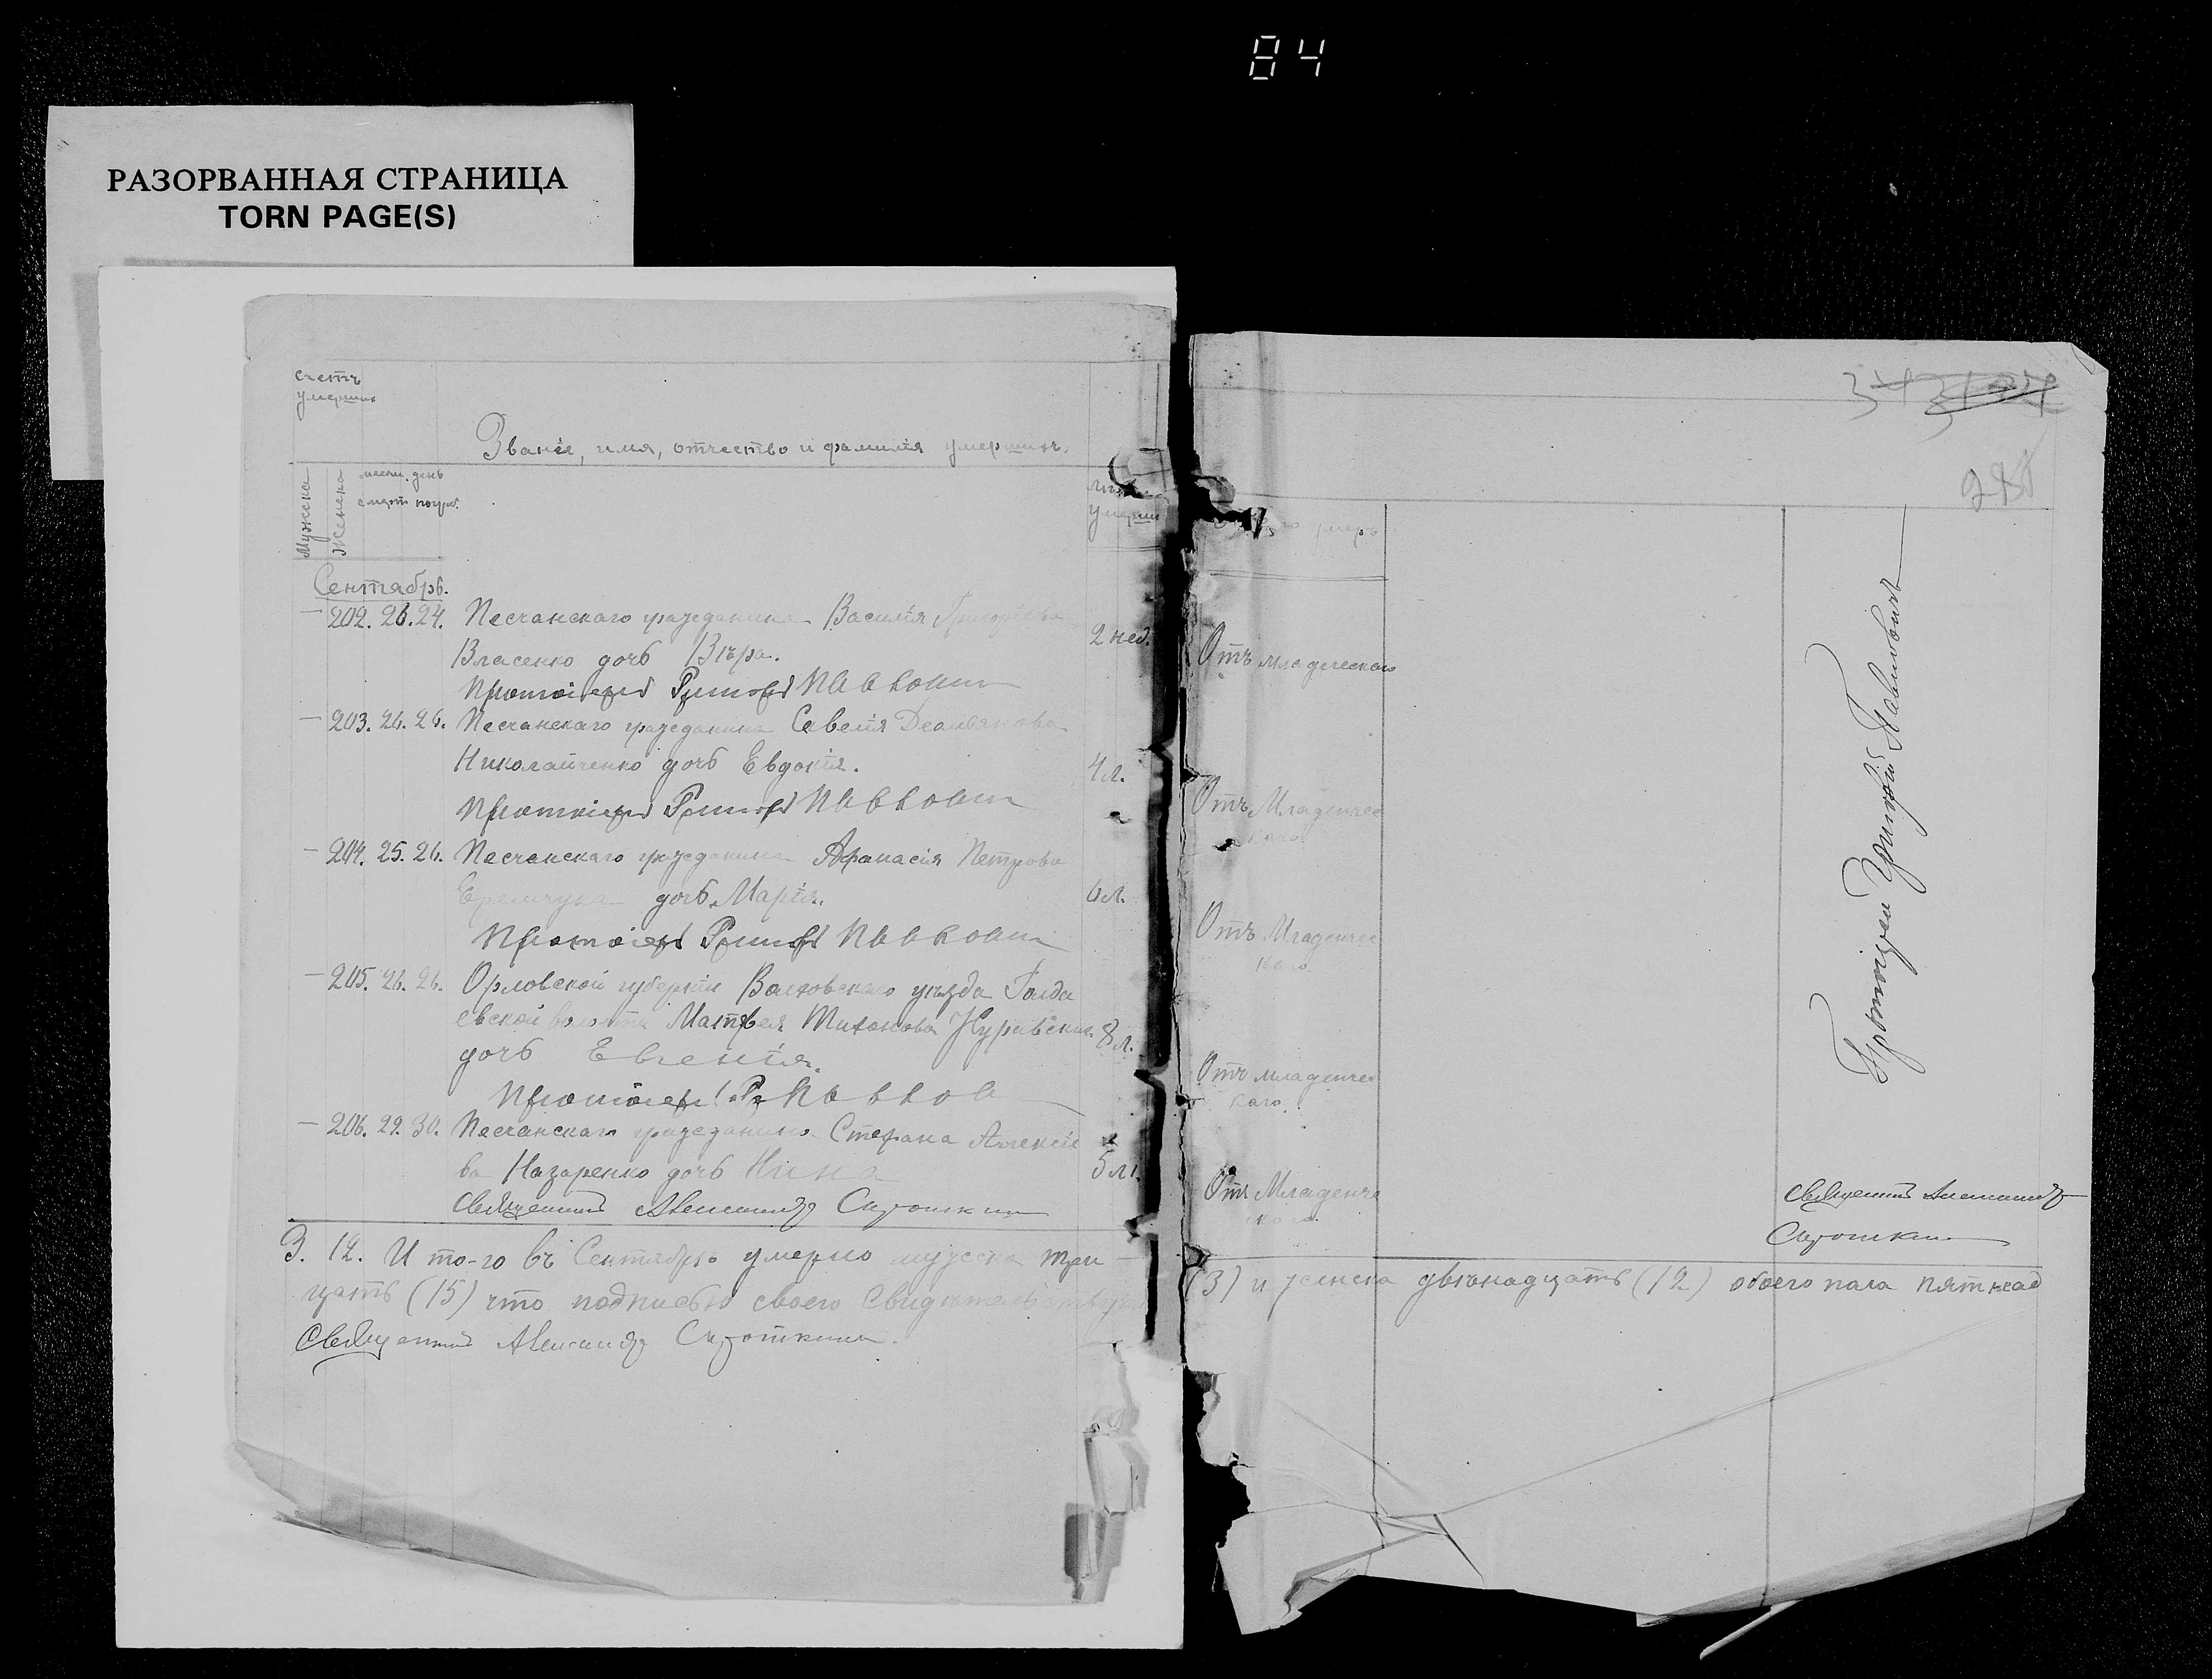 84
РАЗОРВАННАЯ СТРАНИЦА
TORN PAGE(S)
счетъ
умерших
Званіе, имя, отчество и фамилія умершихъ.
Мужска
Женска
месяц. день
смерт погреб.
умерш
Сентябрь.
— 202. 26. 24. Песчанскаго гражданина Василія Григорьева
Власенко дочь Вѣра.
2 нед.
Отъ младенческаго
Протоіерей Григорій Павлович
— 203. 24. 26. Песчанскаго гражданина Савелія
Николайченко дочь Евдокія.
4 л.
Отъ Младенчес
каго.
Протоіерей Григорій Павлович
— 204. 25. 26. Песчанскаго гражданина Афанасія Петрова
Еремчука дочь Марія.
6 л.
Отъ Младенчес
каго.
Протоіерей Григорій Павлович
— 205. 26. 26. Орловской губерніи Болховскаго уѣзда
евской волости Матвея Тихонова
дочь Евгенія.
8 л.
Отъ младенчес
каго.
Протоіерей Гр Павлов
— 206. 29. 30. Песчанскаго гражданина Стефана Алексіе
ва Назаренко дочь Нина
5 л.
Отъ Младенче
скаго.
Священникъ Александръ Сироткинъ
Протоіерей Григорій Павловичъ
Священникъ Александръ
Сироткин
3. 12. И то-го въ Сентябрѣ умерло мужска три (3) и женска двѣнадцать (12) обоего пола пятнад
цать (15) что подписью своею свидѣтельствую
Священникъ Александръ Сироткинъ.